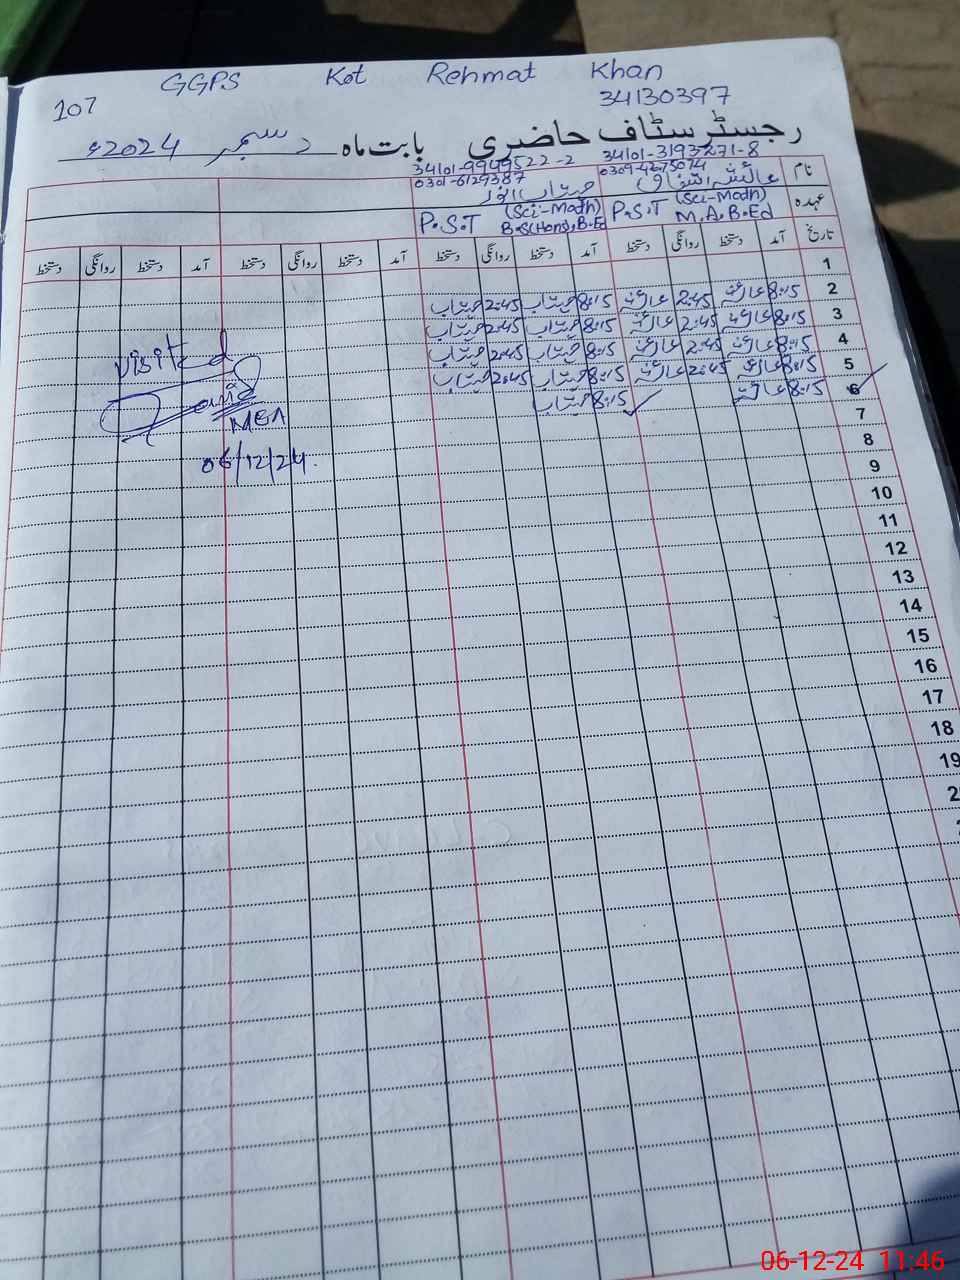 107
GGPS Kot Rehmat Khan
34130397
رجسٹر سٹاف حاضری بابت ماہ دسمبر 2024ء
نام
34101-9949522-2
0301-6129387
عائشہ اشفاق
عہدہ P.S.T (Sci-Math) M.A, B.Ed
P.S.T (Sci-Math) B.S(Hons), B.Ed
تاریخ آمد دستخط روانگی دستخط آمد دستخط روانگی دستخط آمد دستخط روانگی دستخط آمد دستخط روانگی دستخط
1
2 8:15 عائشہ 2:45 عائشہ 8:15 2:45
3 8:15 عائشہ 2:45 عائشہ 8:15 2:45
4 8:15 عائشہ 2:45 عائشہ 8:15 2:45
5 8:15 عائشہ 2:45 عائشہ 8:15 2:45
6 8:15 عائشہ 8:15
7
8
9
10
11
12
13
14
15
16
17
18
19
Visited
MEA
06/12/24.
06-12-24 11:46